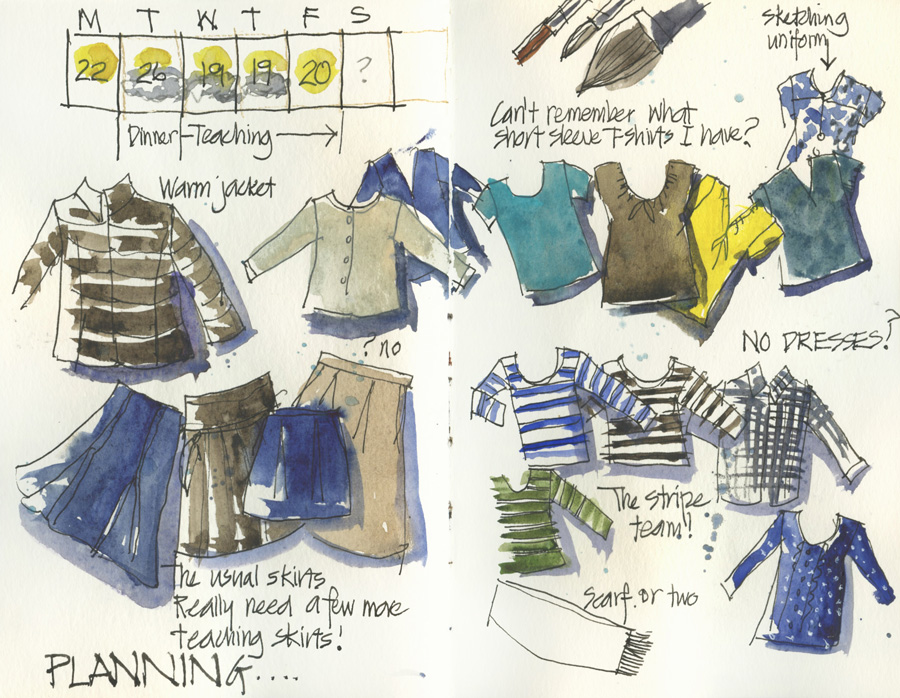 M T W T F S
22 26 19 19 20 ?
Dinner Teaching
Warm jacket
? no
The usual skirts
Really need a few more
teaching skirts!
PLANNING....
sketching
uniform
Can't remember what
short sleeve T-shirts I have?
NO DRESSES?
The stripe
team!!
Scarf. or two